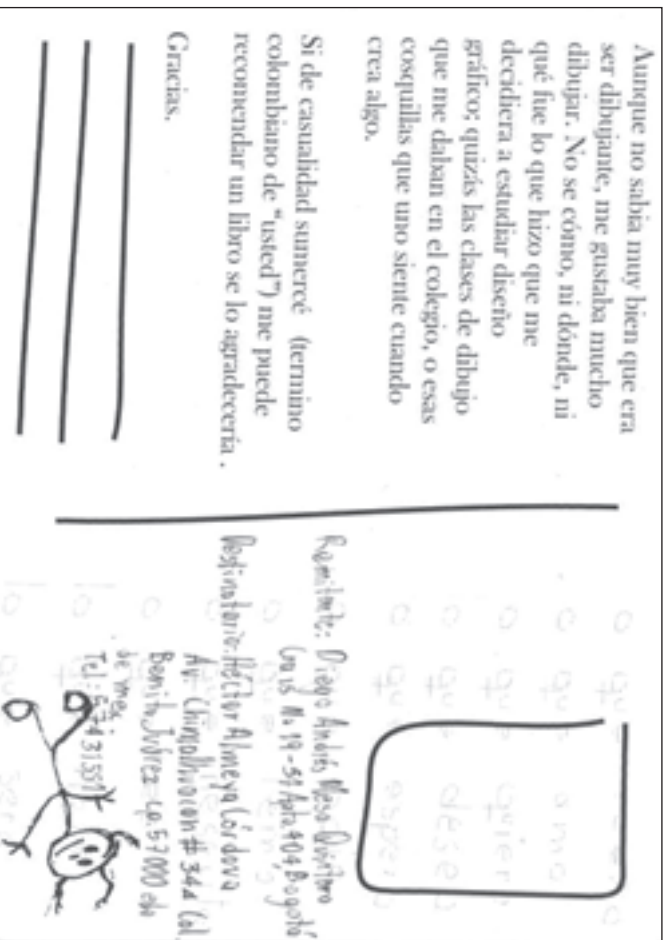 Aunque no sabia muy bien que era
ser dibujante, me gustaba mucho
dibujar. No se cómo, ni dónde, ni
qué fue lo que hizo que me
decidiera a estudiar diseño
gráfico; quizás las clases de dibujo
que me daban en el colegio, o esas
cosquillas que uno siente cuando
crea algo.
Si de casualidad sumercé (termino
colombiano de "usted") me puede
recomendar un libro se lo agradecería .
Gracias.
Remitente: Diego Andrés Mesa Quintero
No 19-51 Apto 404 Bogotá
Destinatario: Héctor Almeya Córdova
Av. Chimalhuacan # 344 Col.
Benito Juárez cp. 57000 edo
de mex.
Tel:
que amo
quiero
deseo